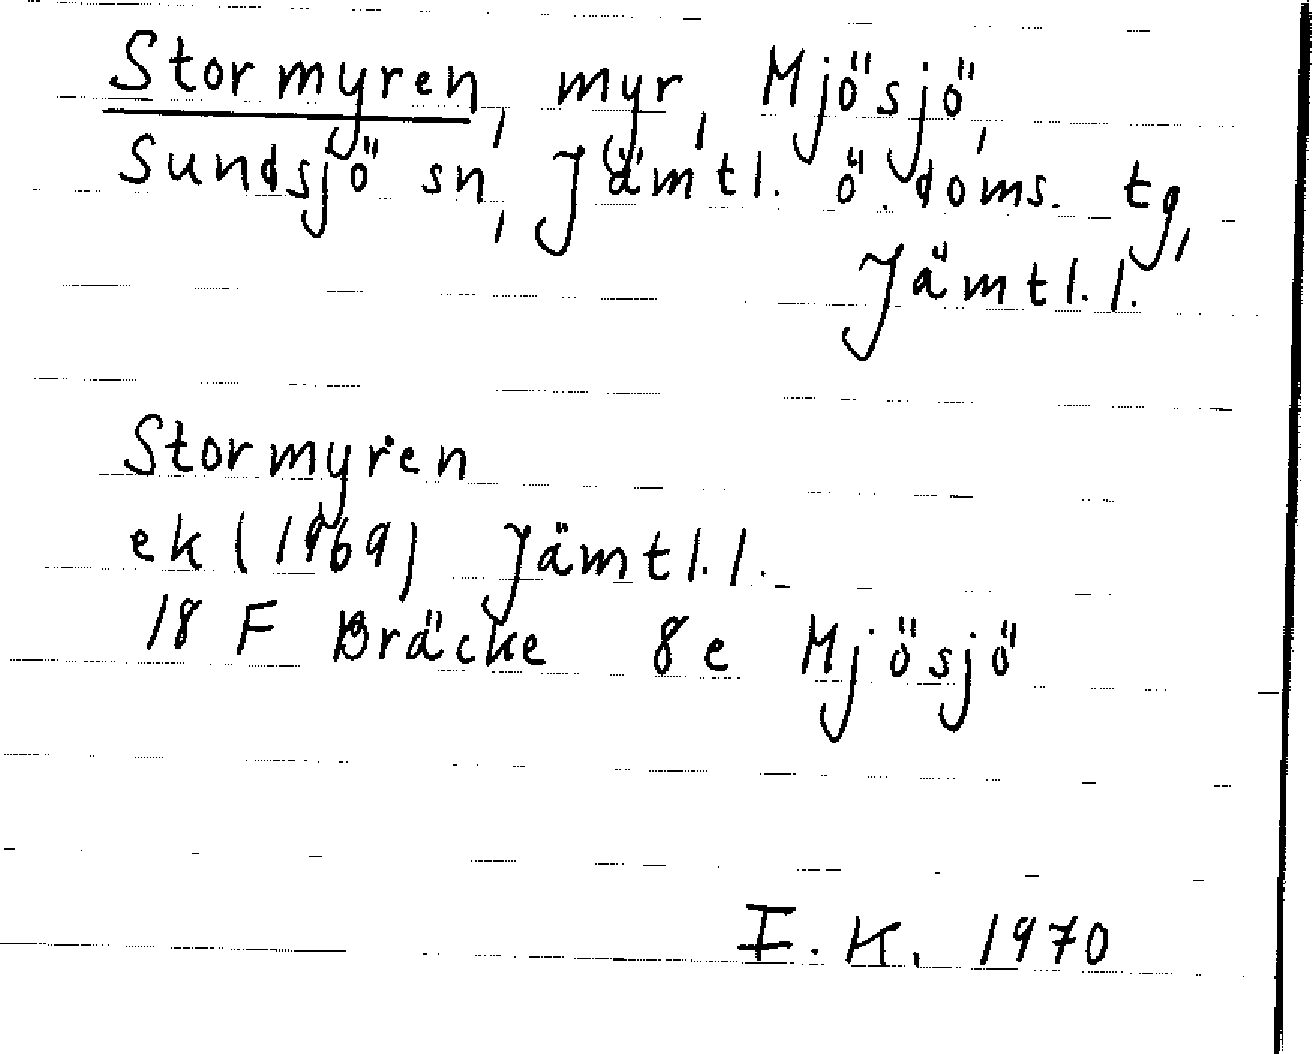 Stormyren, myr, Mjösjö,
Sundsjö sn, Jämtl. ö. doms. tg,
Jämtl. l.
Stormyren
ek (1969) Jämtl. l.
18 F Bräcke 8e Mjösjö
I. K. 1970